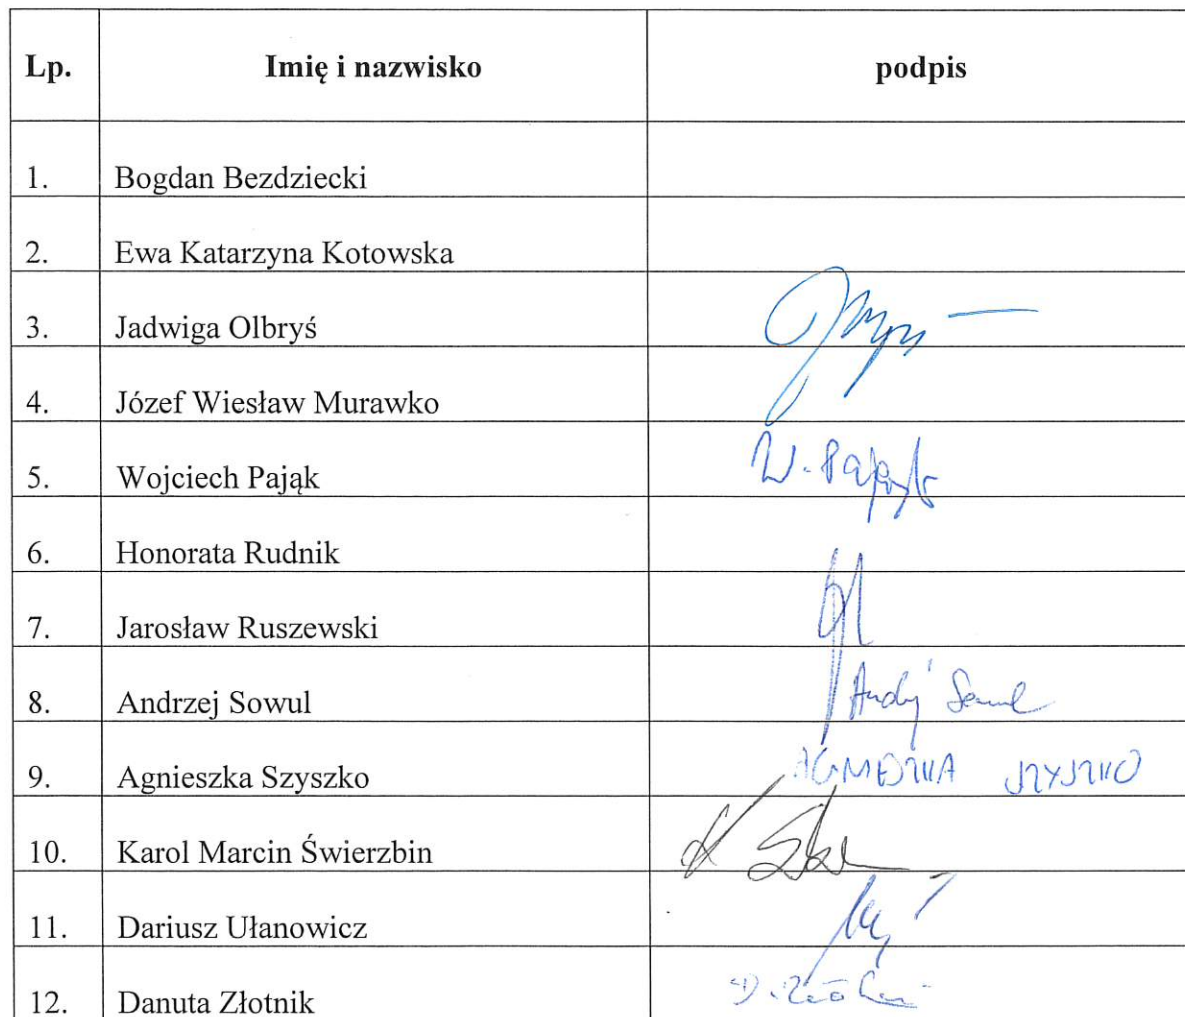 Lp. Imię i nazwisko podpis
1. Bogdan Bezdziecki
2. Ewa Katarzyna Kotowska
3. Jadwiga Olbryś
4. Józef Wiesław Murawko
5. Wojciech Pająk W. Pająk
6. Honorata Rudnik
7. Jarosław Ruszewski
8. Andrzej Sowul Andrzej Sowul
9. Agnieszka Szyszko AGNIESZKA SZYSZKO
10. Karol Marcin Świerzbin
11. Dariusz Ułanowicz
12. Danuta Złotnik